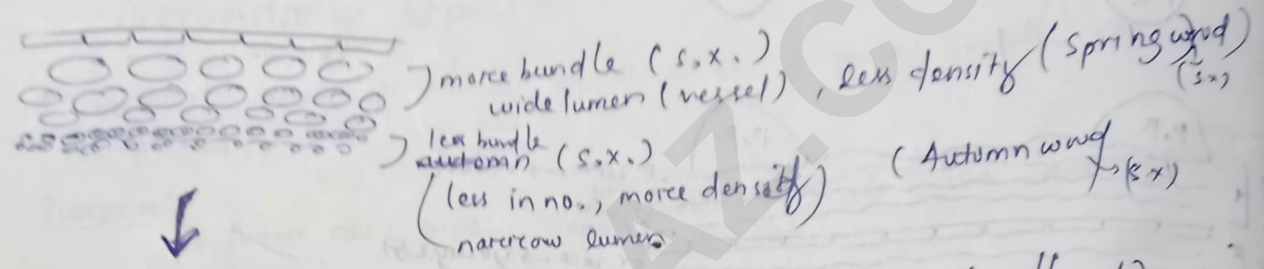 more bundle (s.x.)
wide lumen (vessel), less density (Spring wood)
(s.x)
less bundle
autumn (s.x.)
(Autumn wood
→ (s x)
(less in no., more density)
narrow lumen
AZ.CO